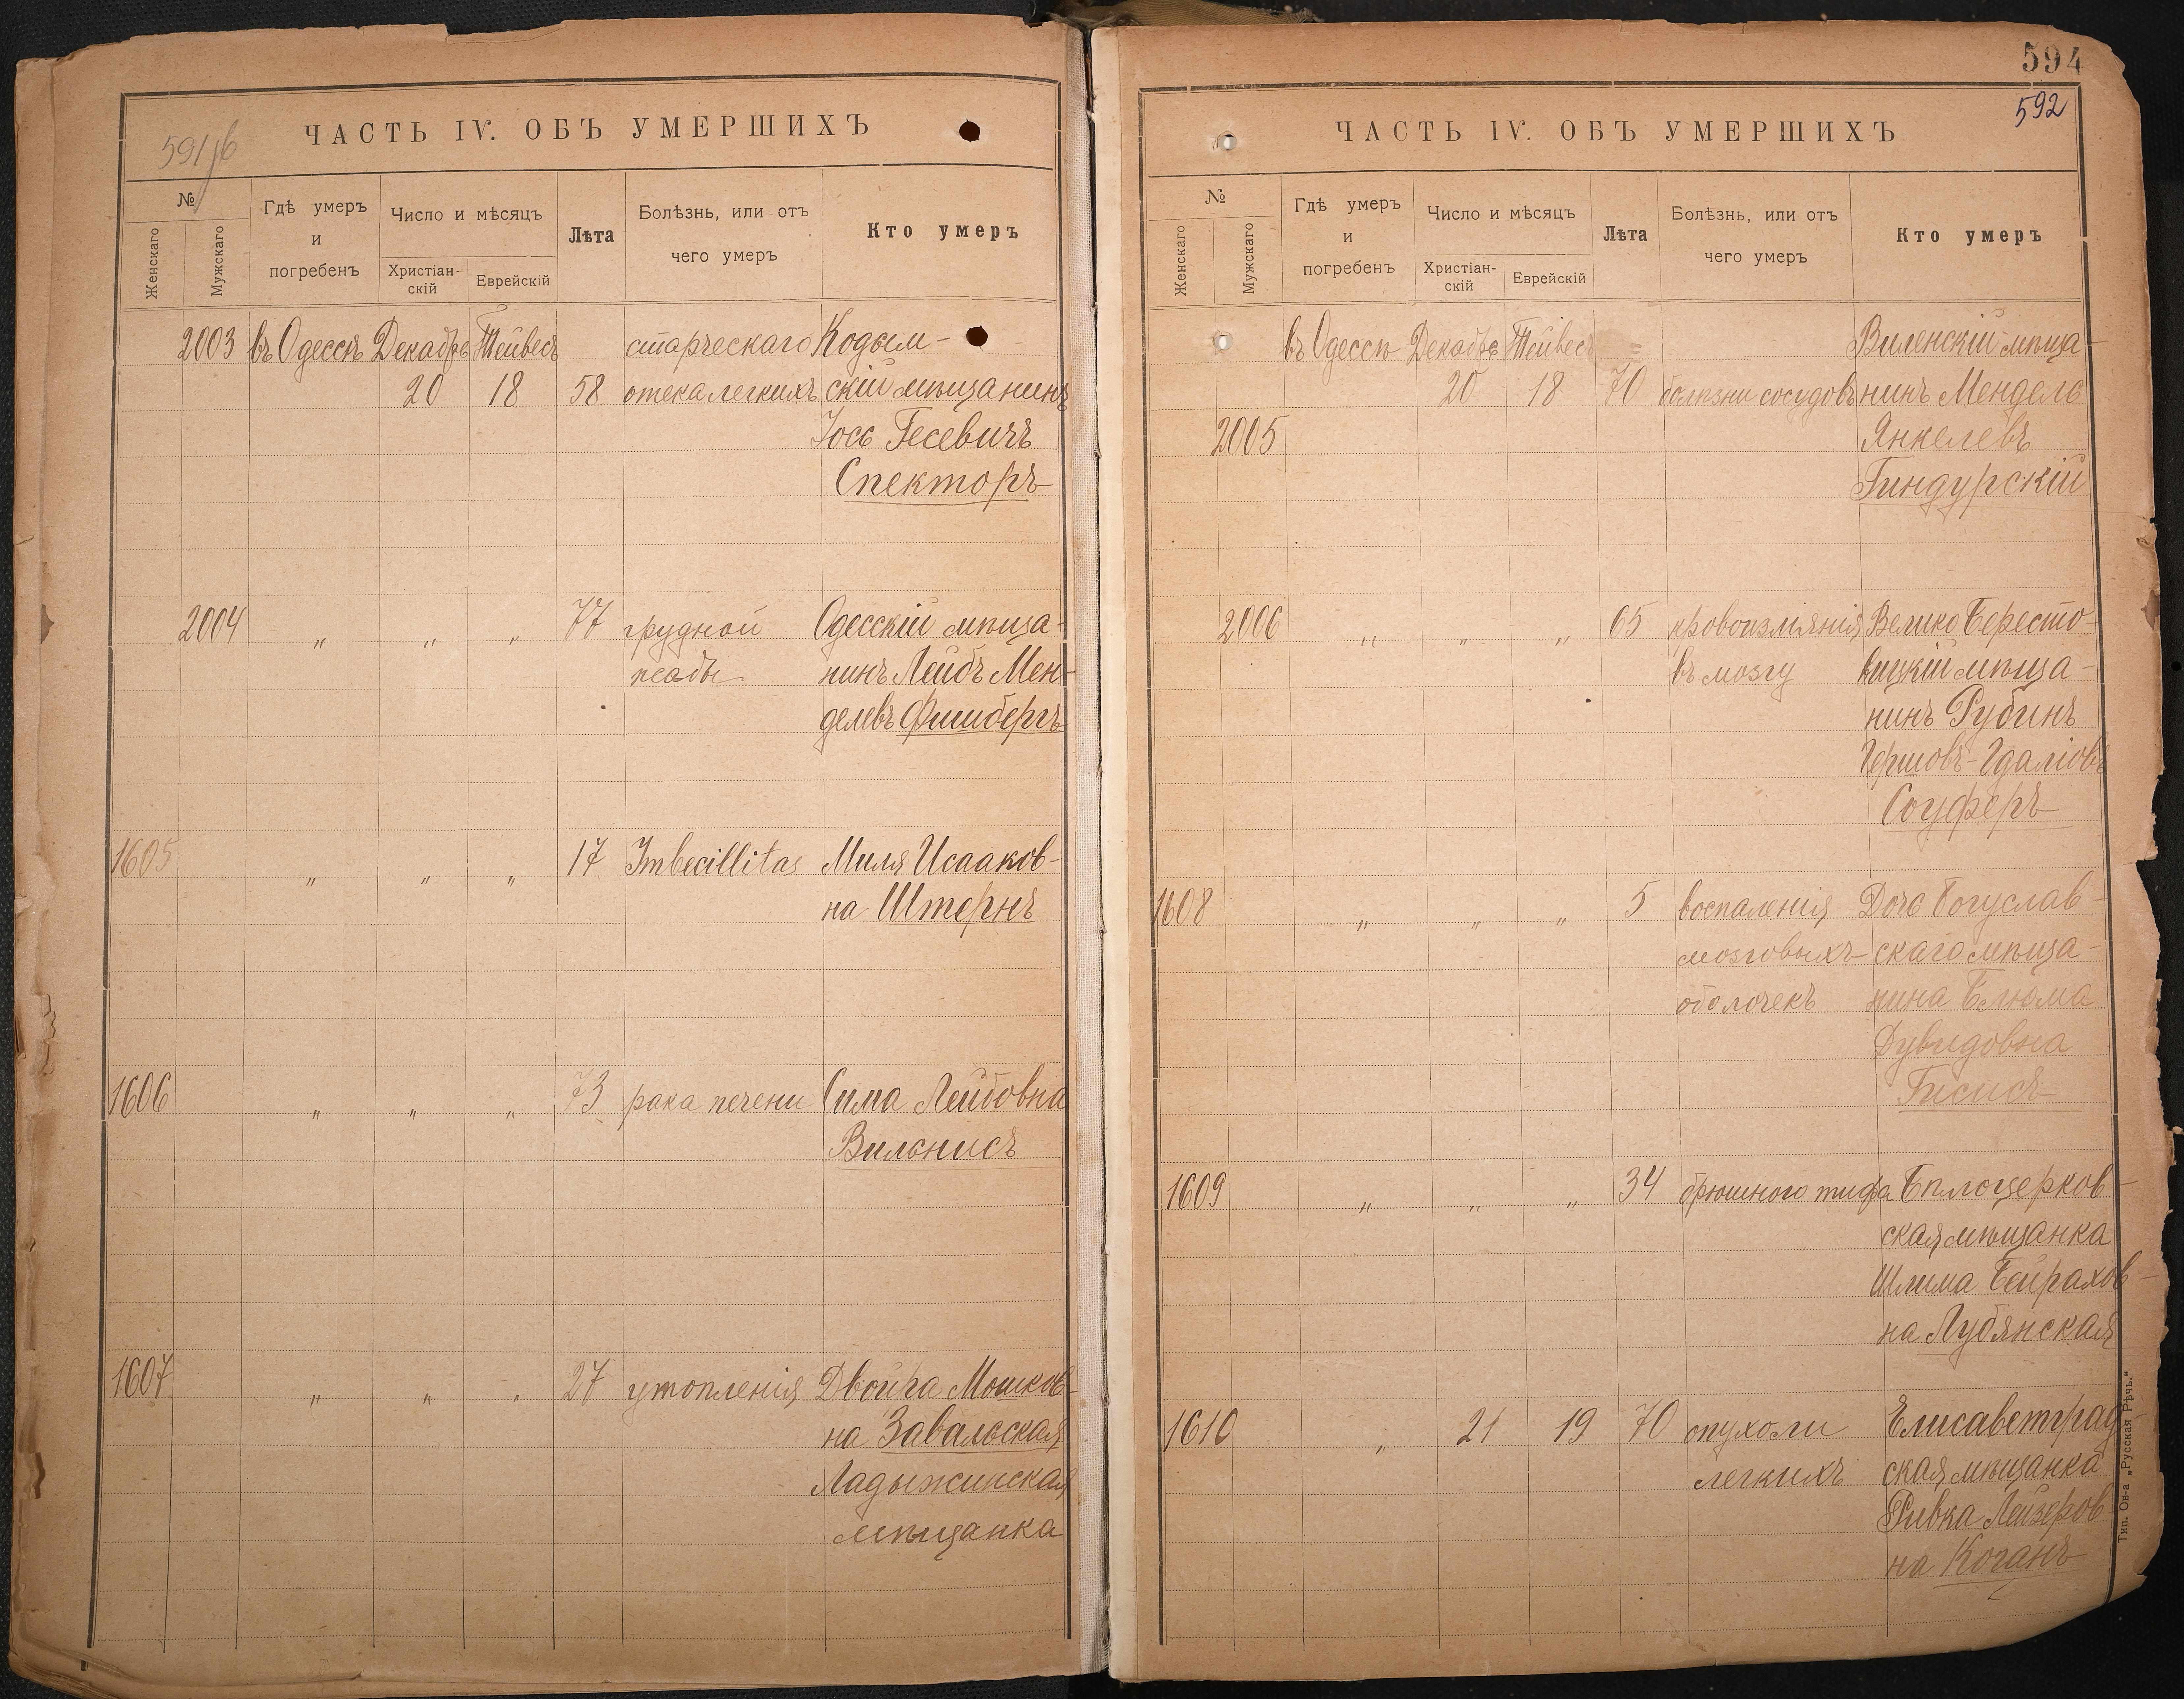 591 об
ЧАСТЬ IV. ОБЪ УМЕРШИХЪ
№
Женскаго
Мужскаго
Гдѣ умеръ
и
погребенъ
Число и мѣсяцъ
Христіан-
скій
Еврейскій
Лѣта
Болѣзнь, или отъ
чего умеръ
Кто умеръ
2003 въ Одессѣ Декабрь Тейвесъ старческаго Кодым-
20 18 58 отека легкихъ скій мѣщанинъ
Іось Гесевичъ
Спекторъ
2004 " " " 77 грудной Одесскій мѣща-
жабы нинъ Лейбъ Мен-
делевъ Фишбергъ
1605 " " " 17 Imbecillitas Миля Исааков-
на Штернъ
1606 " " " 73 рака печени Сима Лейбовна
Вильнисъ
1607 " " " 27 утопленія Двойра Мошков-
на Завальская
Ладыжинская
мѣщанка
594
592
ЧАСТЬ IV. ОБЪ УМЕРШИХЪ
№
Женскаго
Мужскаго
Гдѣ умеръ
и
погребенъ
Число и мѣсяцъ
Христіан-
скій
Еврейскій
Лѣта
Болѣзнь, или отъ
чего умеръ
Кто умеръ
въ Одессѣ Декабрь Тейвесъ Виленскій мѣща-
20 18 70 болѣзни сосудовъ нинъ Мендель
2005 Янкелевъ
Гиндурскій
2006 " " " 65 кровоизліянія Велико Бересто-
въ мозгу вицкій мѣща-
нинъ Рубинъ
Гершовъ-Гдаліовъ
Соуферъ
1608 " " " 5 воспаленія Дочь Богуслав-
мозговыхъ скаго мѣща-
оболочекъ нина Блюма
Дувидовна
Гисисъ
1609 " " " 34 брюшного тифа Бѣлоцерков-
ская мѣщанка
Шлима Бейрахов-
на Лубянская
1610 " 21 19 70 опухоли Елисаветград-
легкихъ ская мѣщанка
Ривка Лейзеров-
на Коганъ
Тип. Ов-а „Русская Рѣчь."